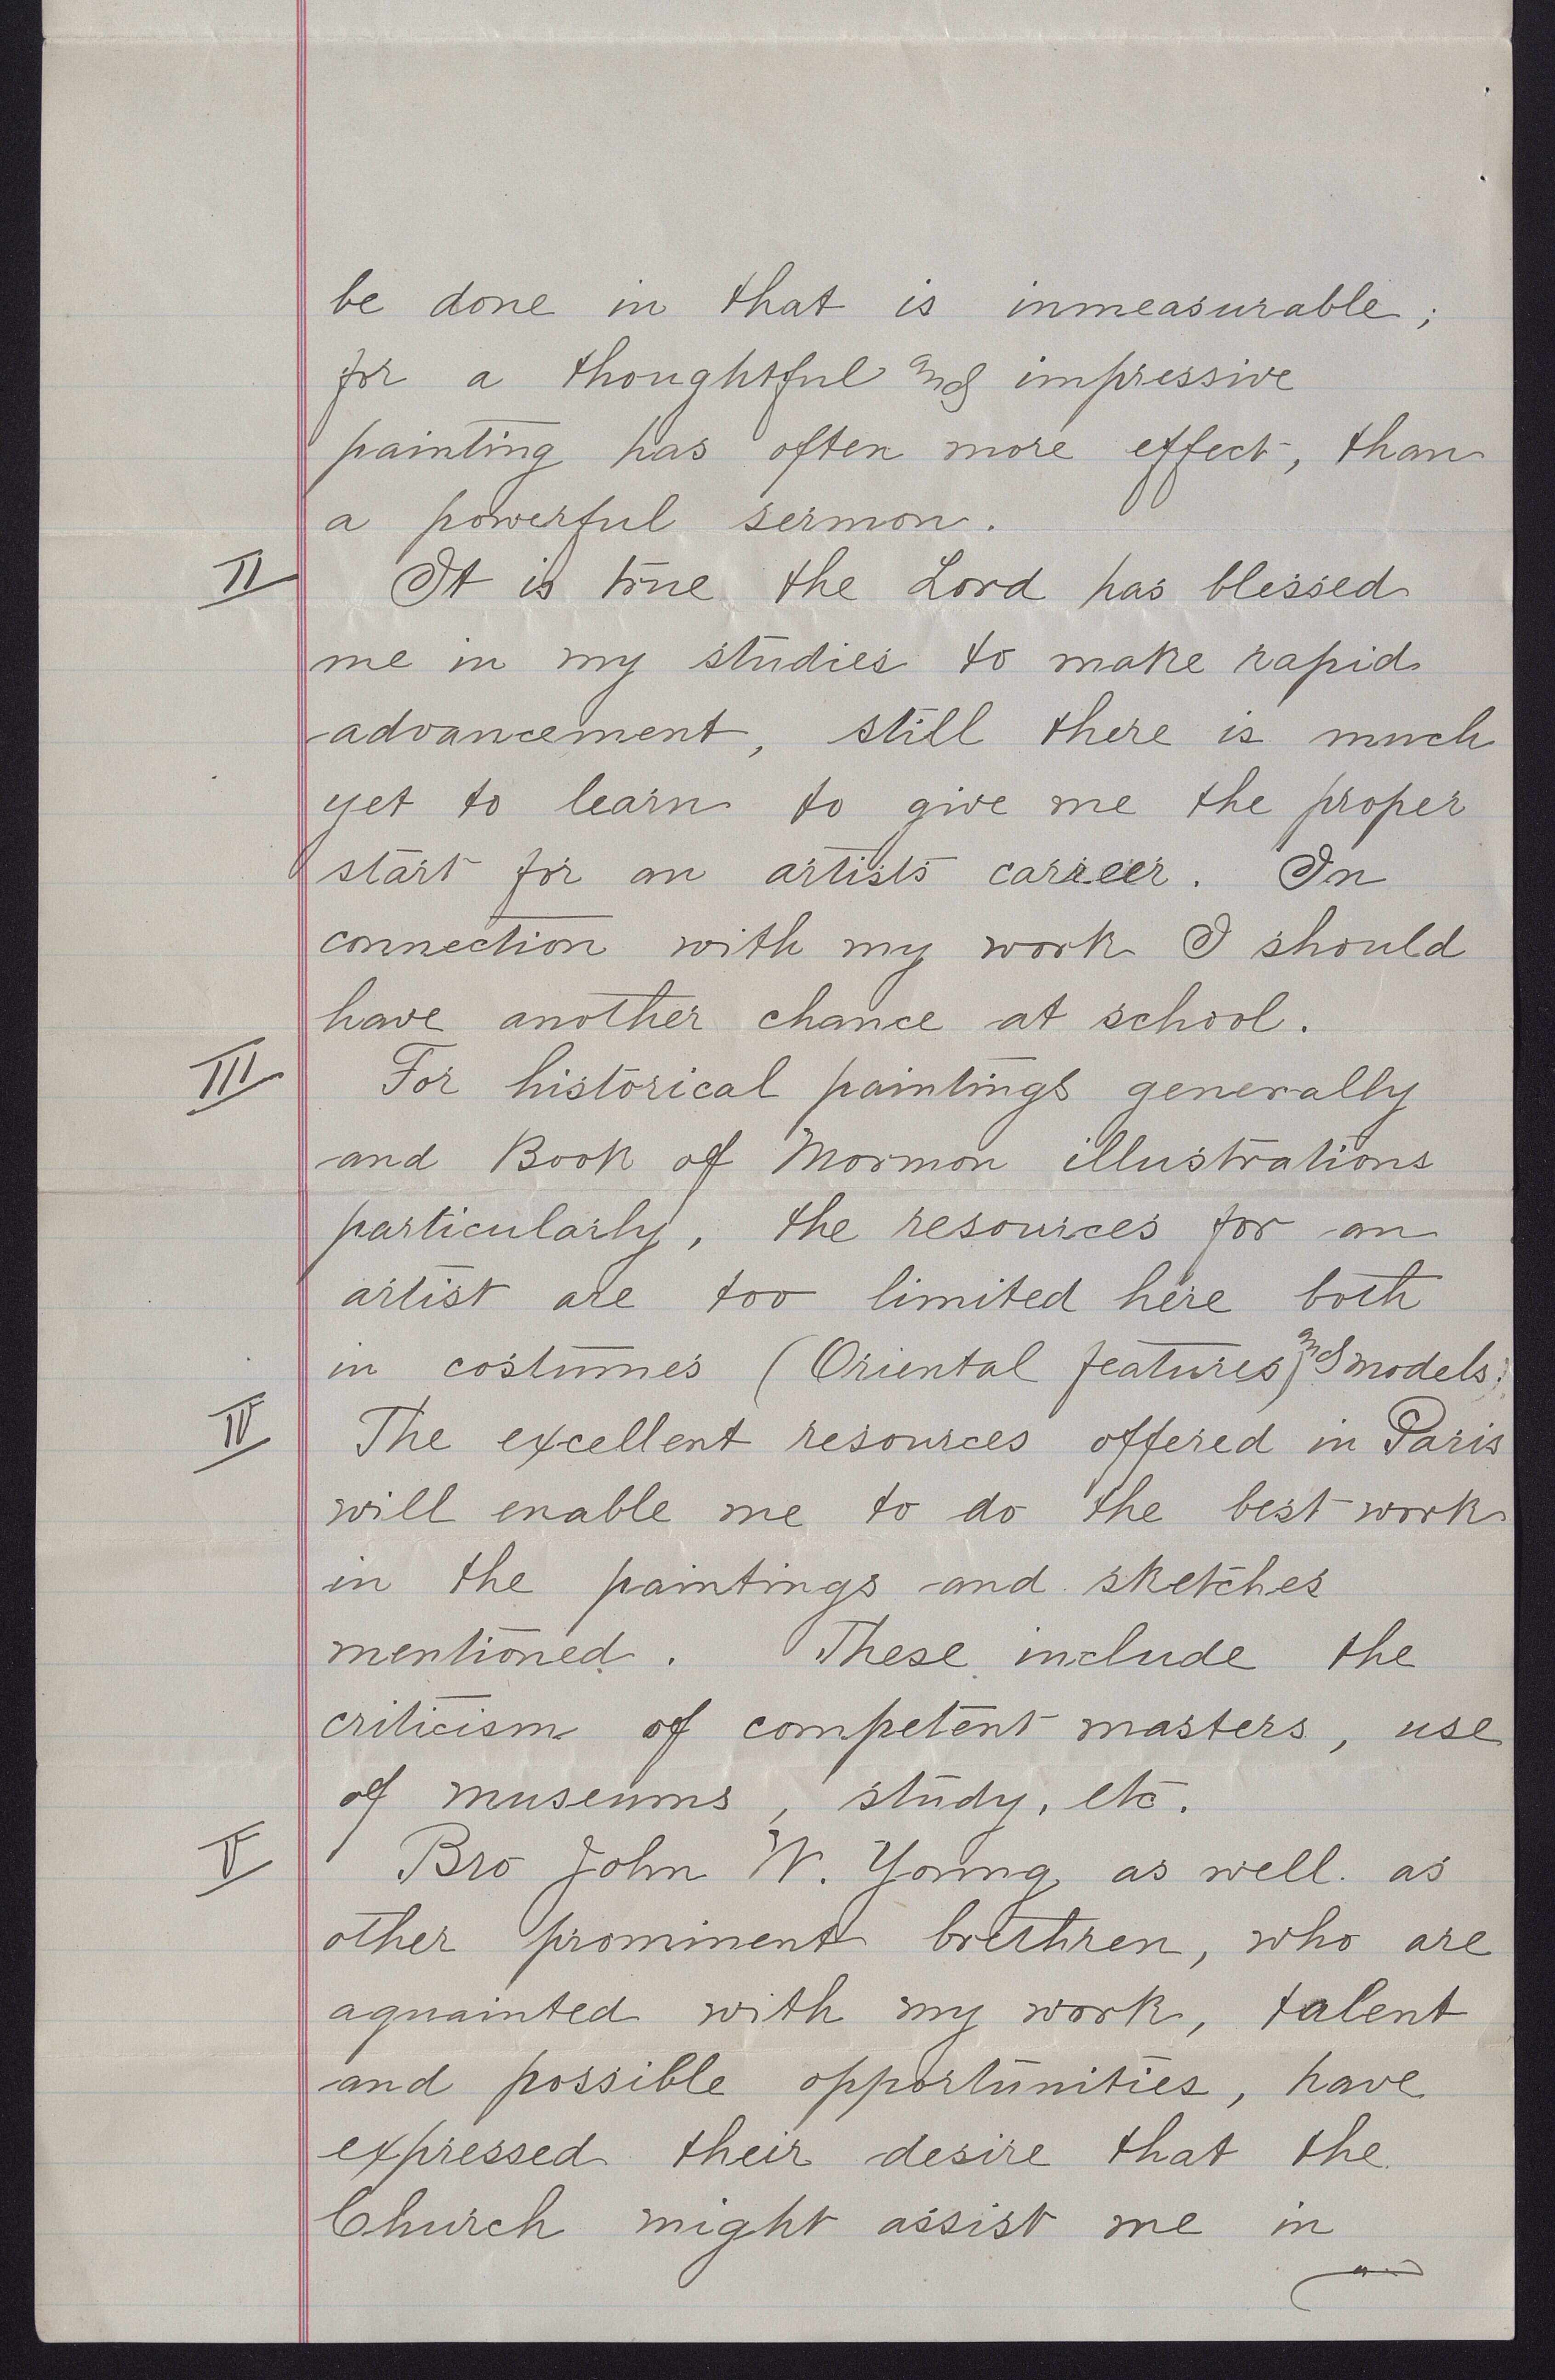 be done in that is inmeasurable;
for a thoughtful and impressive
painting has often more effect, than
a powerful sermon.
II It is true the Lord has blessed
me in my studies to make rapid
advancement, still there is much
yet to learn to give me the proper
start for an artists carreer. In
connection with my work I should
have another chance at school.
III For historical paintings generally
and Book of Mormon illustrations
particularly, the resources for an
artist are too limited here both
in costumes (Oriental features) and models;
IV The excellent resources offered in Paris
will enable me to do the best work
in the paintings and sketches
mentioned. These include the
criticism of competent masters, use
of museums, study, etc.
V Bro John W. Young as well as
other prominent brethren, who are
aquainted with my work, talent
and possible opportunities, have
expressed their desire that the
Church might assist me in